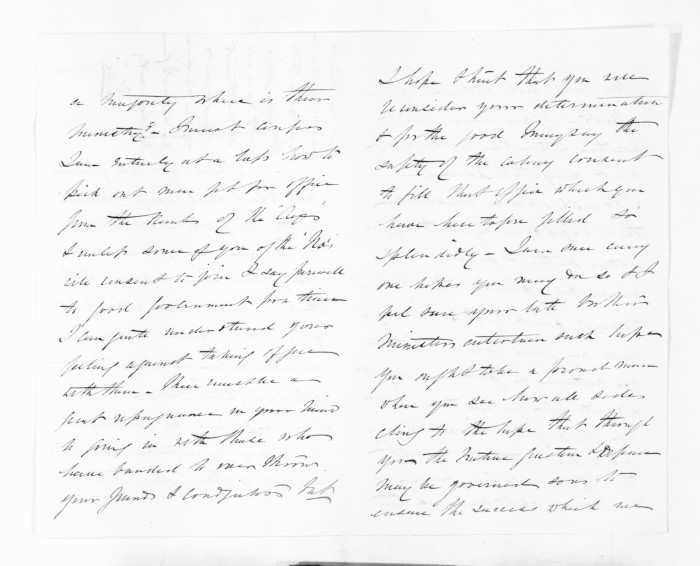 a majority where is their
ministry? - I must confess
I am entirely at a loss how to
pick out men fit for office
from the Ranks of the "Ayes"
& unless some of you of the 'No's
will consent to join I say farewell
to good Government for a time
I can quite understand your
feeling against taking office
with them - There must be a
great repugnance in your mind
to going in with those who
have banded to over throw
your friends & coadjutors but
I hope & trust that you will
reconsider your determination
& for the good I may say the
safety of the colony consent
to fill that office which you
have here tofore filled so
splendidly - I am sure every
one hopes you may do so & I
feel sure your late Brother
Ministers entertain such hope
You ought to be a proud man
when you see how all sides
cling to the hope that through
you the Native question & Defence
may be governed so as to
ensure the success which we